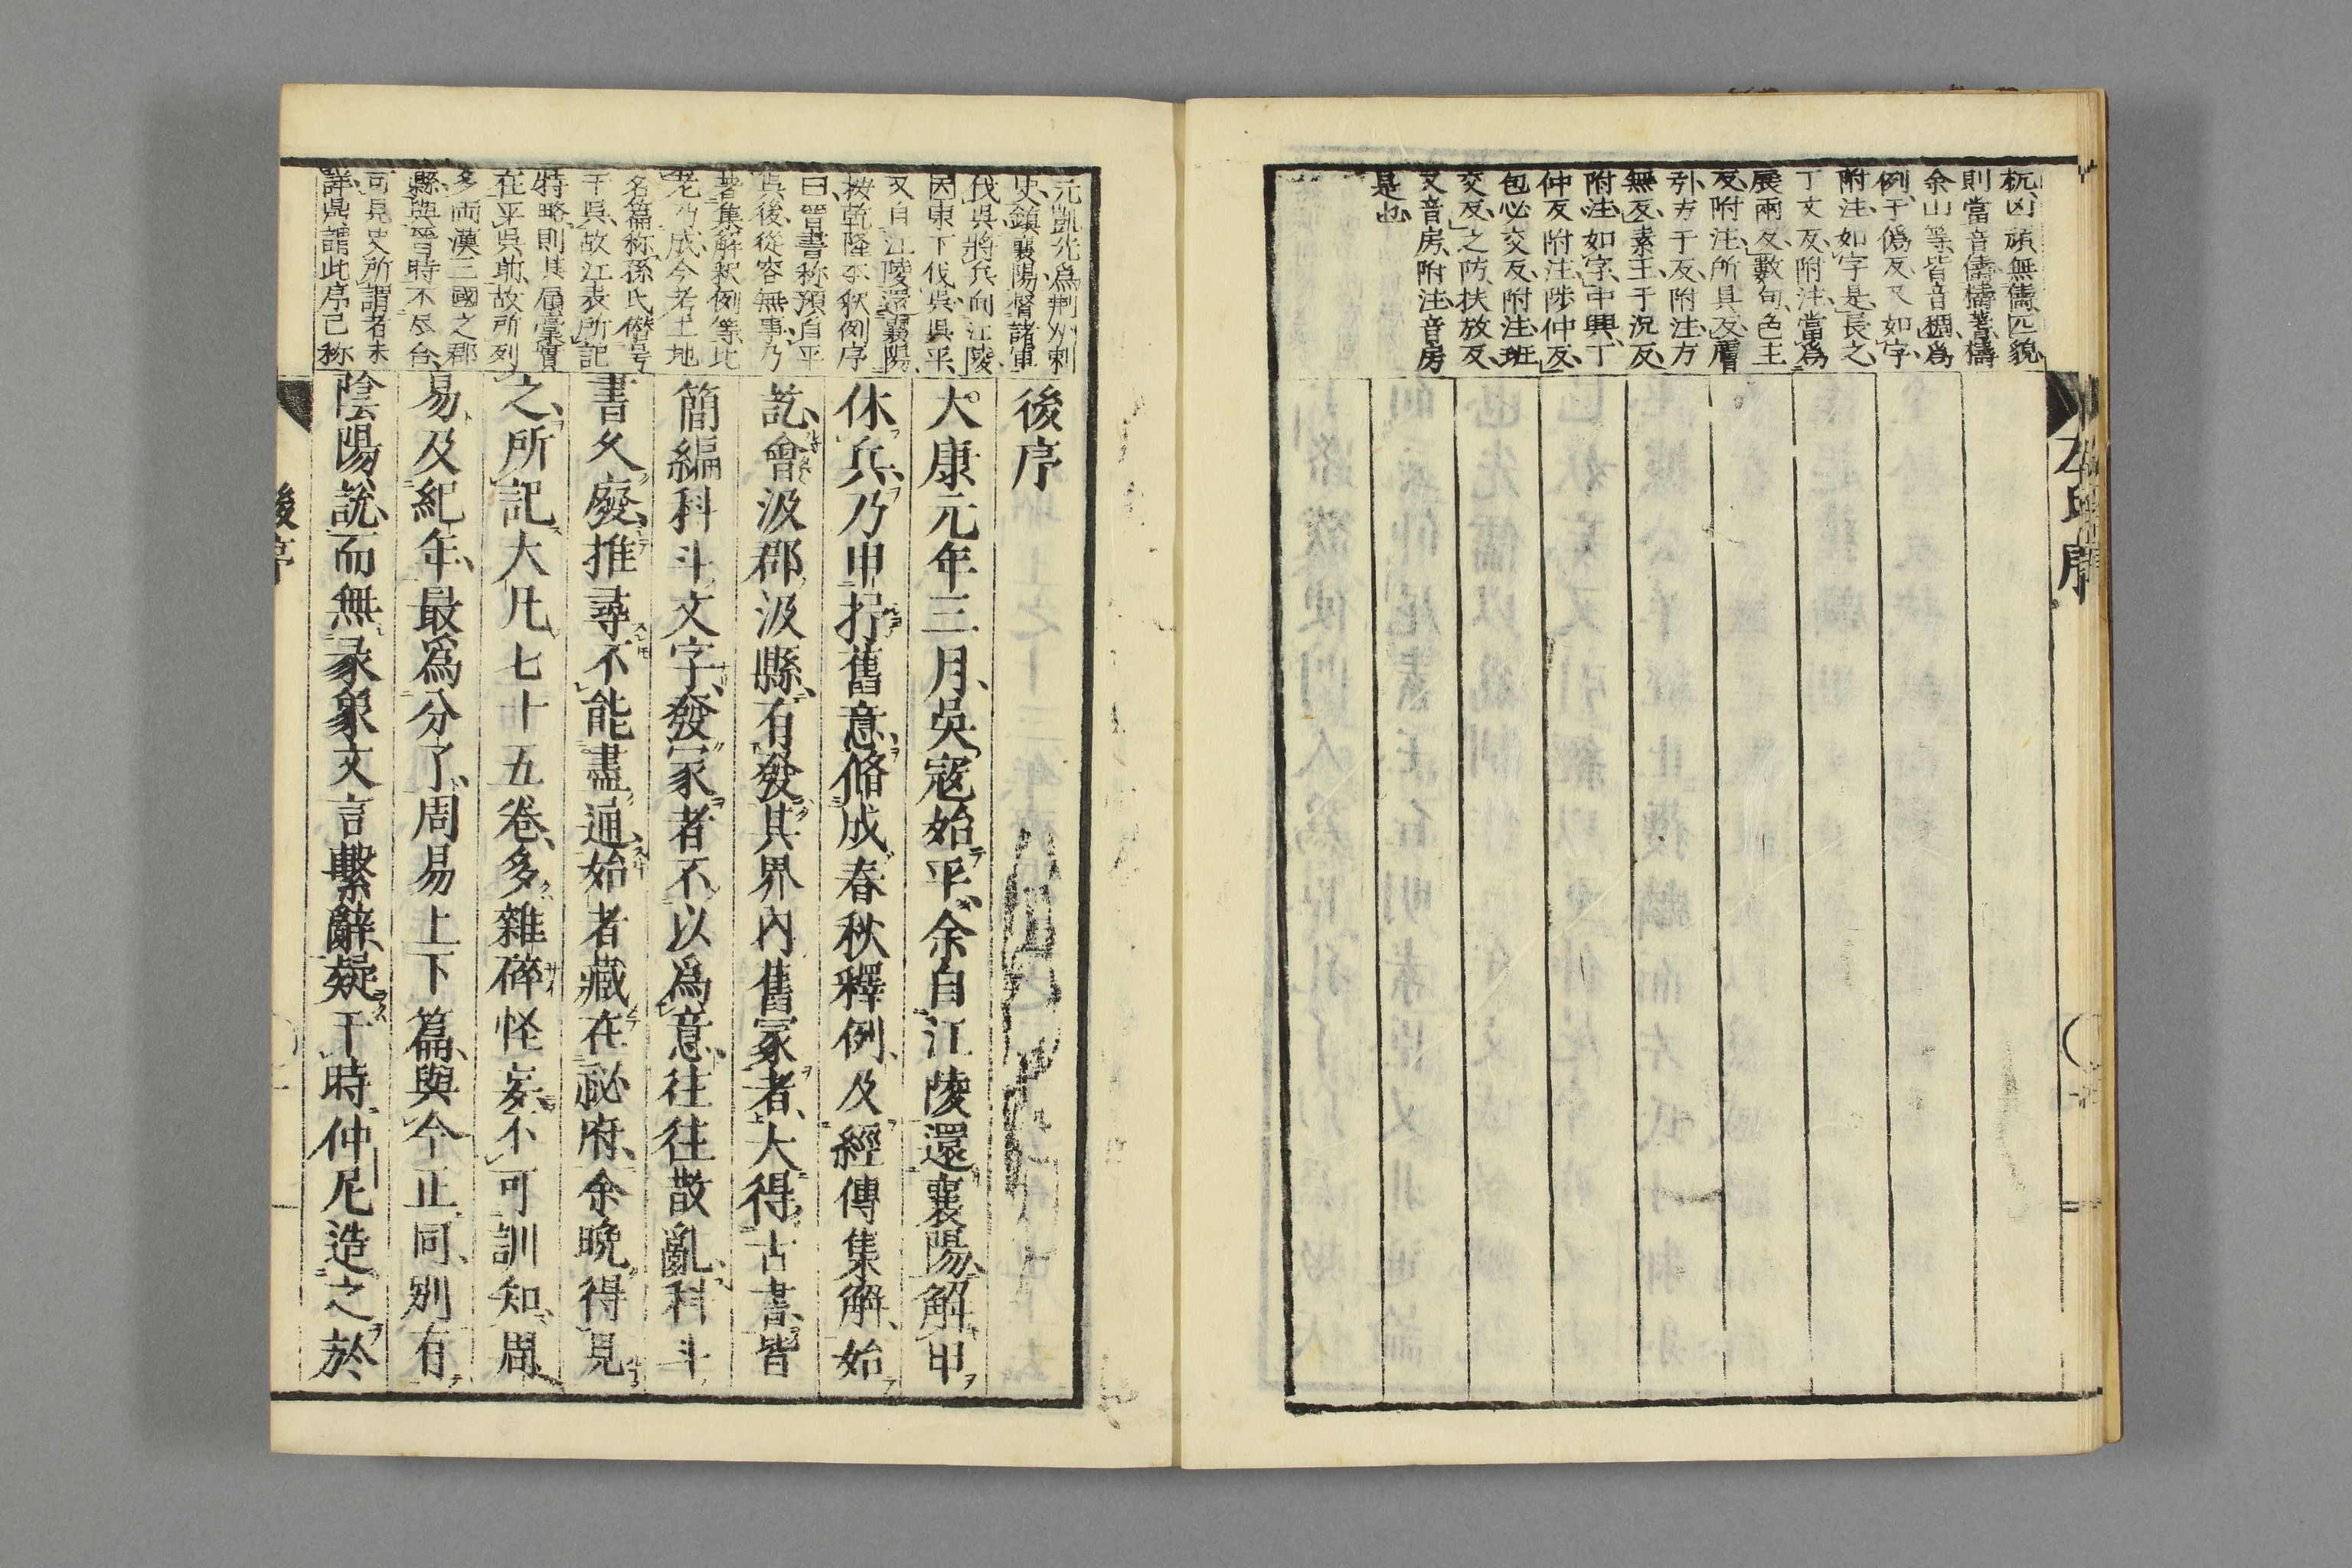 杌、凶頑無儔匹貌、
則當音儔檮蓍檮
余山等、皆音櫉、爲
例、于僞反、又如字、
附注、如字是、長之、
丁丈反、附注、當爲
展兩反、數句、色主
反、附注、所具反、膚
引、方于反、附注、方
無反、素王、于況反、
附注、如字、中興、丁
仲反、附注、陟仲反、
包必交反、附注、班
交反、之防、扶放反、
又音房、附注、音房
是也、
元凱先爲荊州刺
史、鎮襄陽、督諸軍
伐吳、將兵向江陵、
因東下伐吳、吳平、
又自江陵還襄陽、
按乾隆本釈例序
曰、晋書称預自平
吳後、從容無事、乃
著集解釈例等、比
老乃成、今考土地
名篇称、孫氏僭号
于吳、故江表所記
特略、則其屬稾實
在平吳前、故所列
多両漢三國之郡
縣、與晋時不尽合
可見史所謂者未
詳、鼎謂此序已称
後序
大康元年三月、吳寇始平、余自江陵還襄陽、解甲
休兵、乃申抒舊意、脩成春秋釋例、及經傳集解、始
訖、會汲郡汲縣、有發其界內舊冢者、大得古書、皆
簡編科斗文字、發冢者不以爲意、往往散亂、科斗
書久廢、推尋不能盡通、始者藏在祕府、余晚得見
之、所記大凡七十五卷、多雜碎怪妄、不可訓知、周
易及紀年、最爲分了、周易上下篇、與今正同、別有
陰陽說、而無彖象文言繫辭、疑于時仲尼造之於
後序